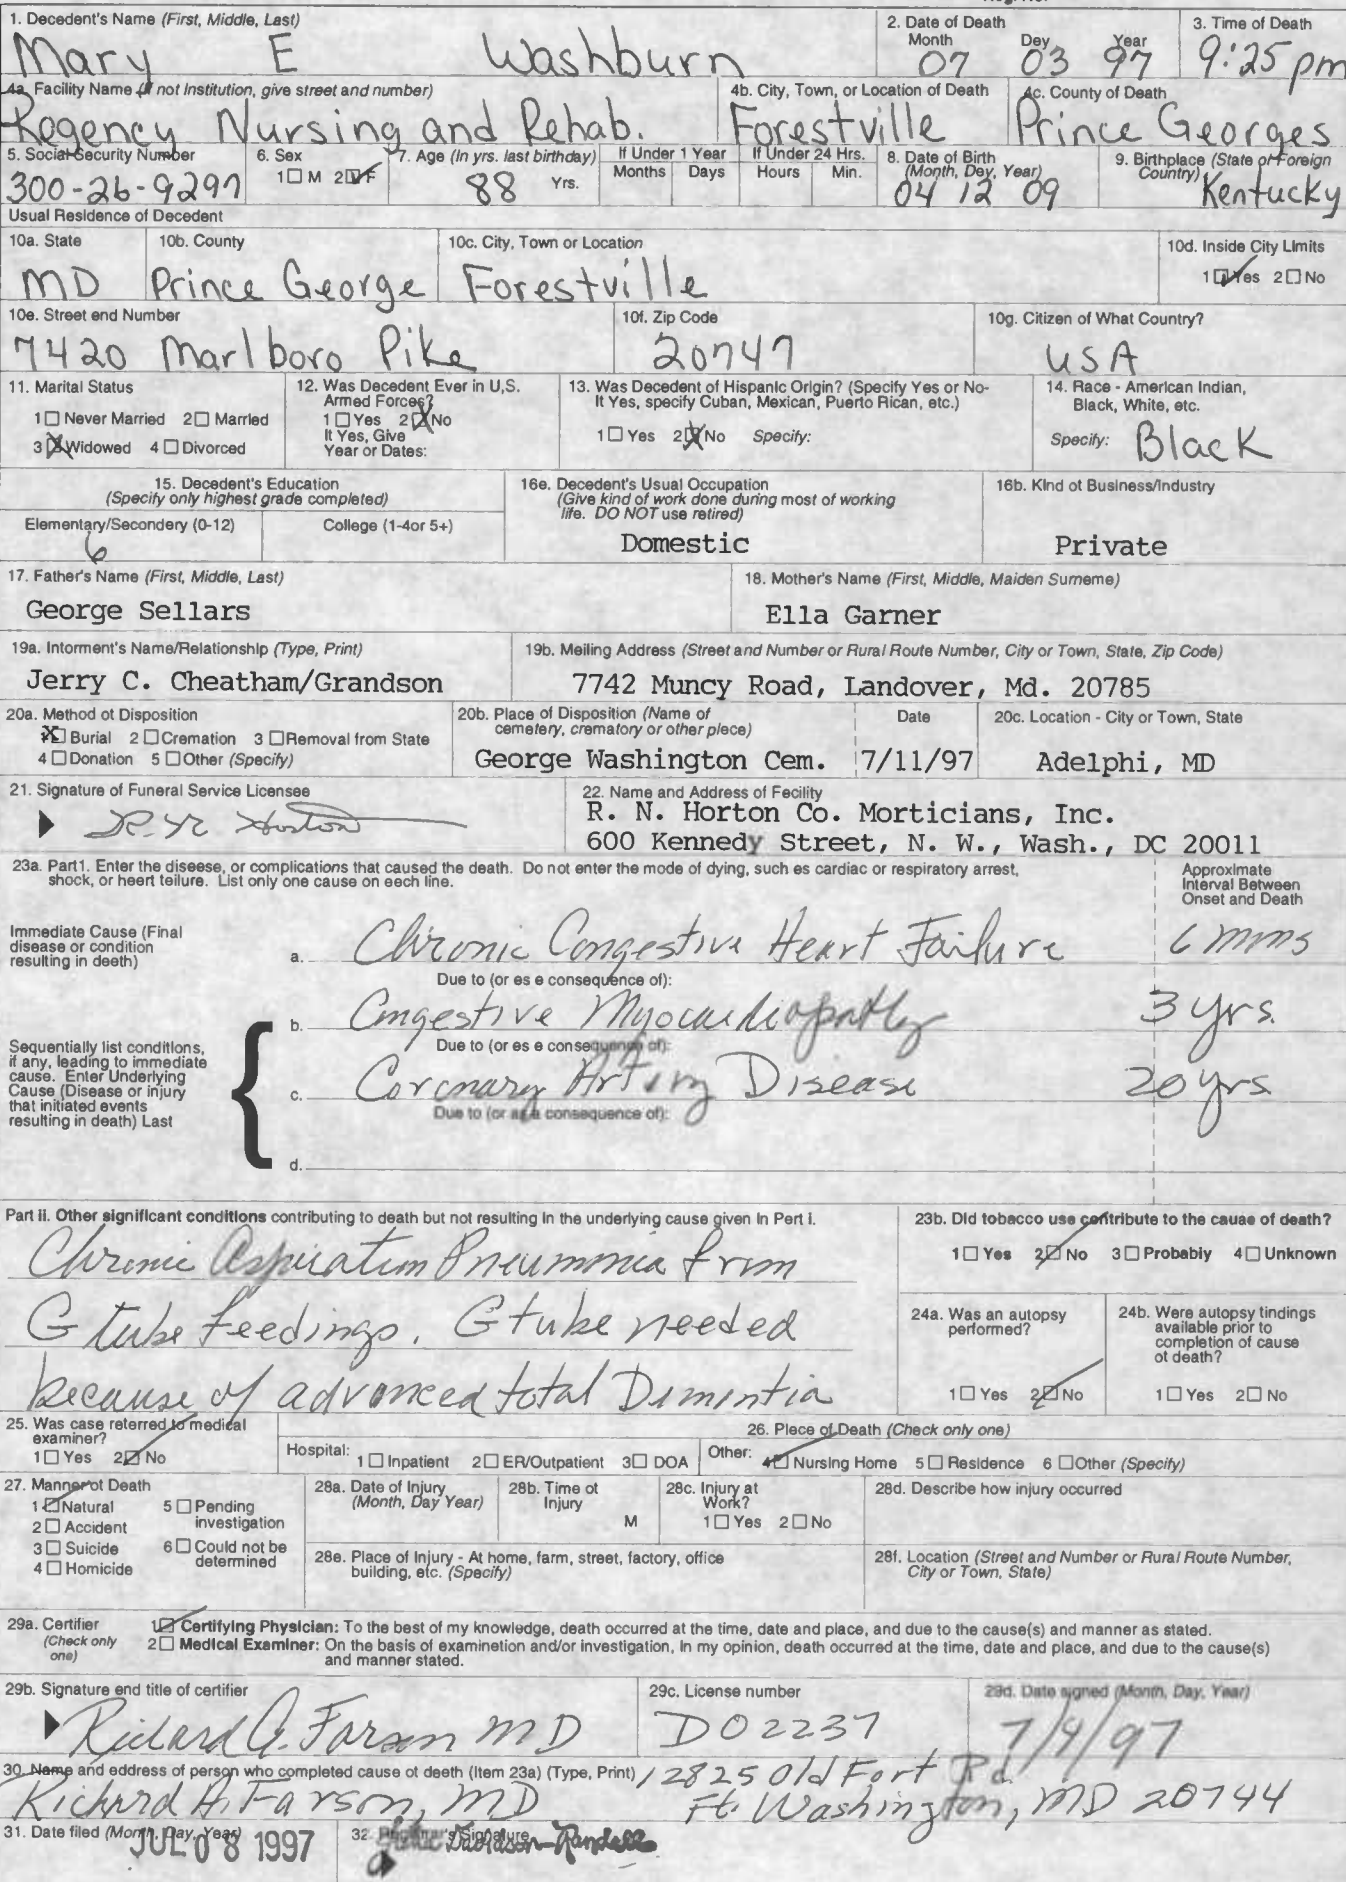 1. Decedent's Name (First, Middle, Last)
Mary E Washburn
2. Date of Death
Month Dey Year
07 03 97
3. Time of Death
9:25 pm
4a. Facility Name (If not Institution, give street and number)
Regency Nursing and Rehab.
4b. City, Town, or Location of Death
Forestville
4c. County of Death
Prince Georges
5. Social Security Number
300-26-9297
6. Sex
1☐ M 2☑ F
7. Age (In yrs. last birthday)
88 Yrs.
If Under 1 Year
Months Days
If Under 24 Hrs.
Hours Min.
8. Date of Birth
(Month, Dey, Year)
04 12 09
9. Birthplace (State or Foreign
Country)
Kentucky
Usual Residence of Decedent
10a. State
MD
10b. County
Prince George
10c. City, Town or Location
Forestville
10d. Inside City Limits
1☑ Yes 2☐ No
10e. Street end Number
7420 Marlboro Pike
10f. Zip Code
20747
10g. Citizen of What Country?
USA
11. Marital Status
1☐ Never Married 2☐ Married
3☒ Widowed 4☐ Divorced
12. Was Decedent Ever in U.S.
Armed Forces?
1☐ Yes 2☒ No
It Yes, Give
Year or Dates:
13. Was Decedent of Hispanic Origin? (Specify Yes or No-
It Yes, specify Cuban, Mexican, Puerto Rican, etc.)
1☐ Yes 2☒ No Specify:
14. Race - American Indian,
Black, White, etc.
Specify: Black
15. Decedent's Education
(Specify only highest grade completed)
Elementary/Secondery (0-12)
6
College (1-4or 5+)
16e. Decedent's Usual Occupation
(Give kind of work done during most of working
life. DO NOT use retired)
Domestic
16b. Kind ot Business/Industry
Private
17. Father's Name (First, Middle, Last)
George Sellars
18. Mother's Name (First, Middle, Maiden Surneme)
Ella Garner
19a. Intorment's Name/Relationship (Type, Print)
Jerry C. Cheatham/Grandson
19b. Meiling Address (Street and Number or Rural Route Number, City or Town, State, Zip Code)
7742 Muncy Road, Landover, Md. 20785
20a. Method ot Disposition
☒ Burial 2☐ Cremation 3☐ Removal from State
4☐ Donation 5☐ Other (Specify)
20b. Place of Disposition (Name of
cemetery, crematory or other plece)
George Washington Cem.
Date
7/11/97
20c. Location - City or Town, State
Adelphi, MD
21. Signature of Funeral Service Licensee
Horton
22. Name and Address of Fecility
R. N. Horton Co. Morticians, Inc.
600 Kennedy Street, N. W., Wash., DC 20011
23a. Part1. Enter the diseese, or complications that caused the death. Do not enter the mode of dying, such es cardiac or respiratory arrest,
shock, or heert teilure. List only one cause on eech line.
Approximate
Interval Between
Onset and Death
Immediate Cause (Final
disease or condition
resulting in death)
a. Chronic Congestive Heart Failure
Due to (or es e consequence of):
b. Congestive Myocardiopathy 3 yrs.
Due to (or es e consequence of):
Sequentially list conditions,
if any, leading to immediate
cause. Enter Underlying
Cause (Disease or injury
that initiated events
resulting in death) Last
c. Coronary Artery Disease 20 yrs.
Due to (or as a consequence of):
d.
Part ii. Other significant conditions contributing to death but not resulting in the underlying cause given in Pert i.
Chronic Aspiration Pneumonia from
G tube feedings. G tube needed
because of advanced total Dementia
23b. Did tobacco use contribute to the cauae of death?
1☐ Yes 2☑ No 3☐ Probably 4☐ Unknown
24a. Was an autopsy
performed?
1☐ Yes 2☑ No
24b. Were autopsy tindings
available prior to
completion of cause
ot death?
1☐ Yes 2☐ No
25. Was case reterred to medical
examiner?
1☐ Yes 2☑ No
26. Plece of Death (Check only one)
Hospital: 1☐ Inpatient 2☐ ER/Outpatient 3☐ DOA
Other: 4☑ Nursing Home 5☐ Residence 6☐ Other (Specify)
27. Manner ot Death
1☑ Natural 5☐ Pending
investigation
2☐ Accident
3☐ Suicide 6☐ Could not be
determined
4☐ Homicide
28a. Date of Injury
(Month, Day Year)
28b. Time ot
Injury
M
28c. Injury at
Work?
1☐ Yes 2☐ No
28d. Describe how injury occurred
28e. Place of Injury - At home, farm, street, factory, office
building, etc. (Specify)
28f. Location (Street and Number or Rural Route Number,
City or Town, State)
29a. Certifier
(Check only
one)
1☑ Certifying Physician: To the best of my knowledge, death occurred at the time, date and place, and due to the cause(s) and manner as stated.
2☐ Medical Examiner: On the basis of examinetion and/or investigation, in my opinion, death occurred at the time, date and place, and due to the cause(s)
and manner stated.
29b. Signature end title of certifier
Richard A. Farson MD
29c. License number
D02237
29d. Date signed (Month, Day, Year)
30. Name and eddress of person who completed cause ot deeth (Item 23a) (Type, Print)
12825 Old Fort Rd
Richard A. Farson, MD Ft. Washington, MD 20744
31. Date filed (Month, Day, Year)
JUL 08 1997
32. Registrar's Signature
Davidson-Randall